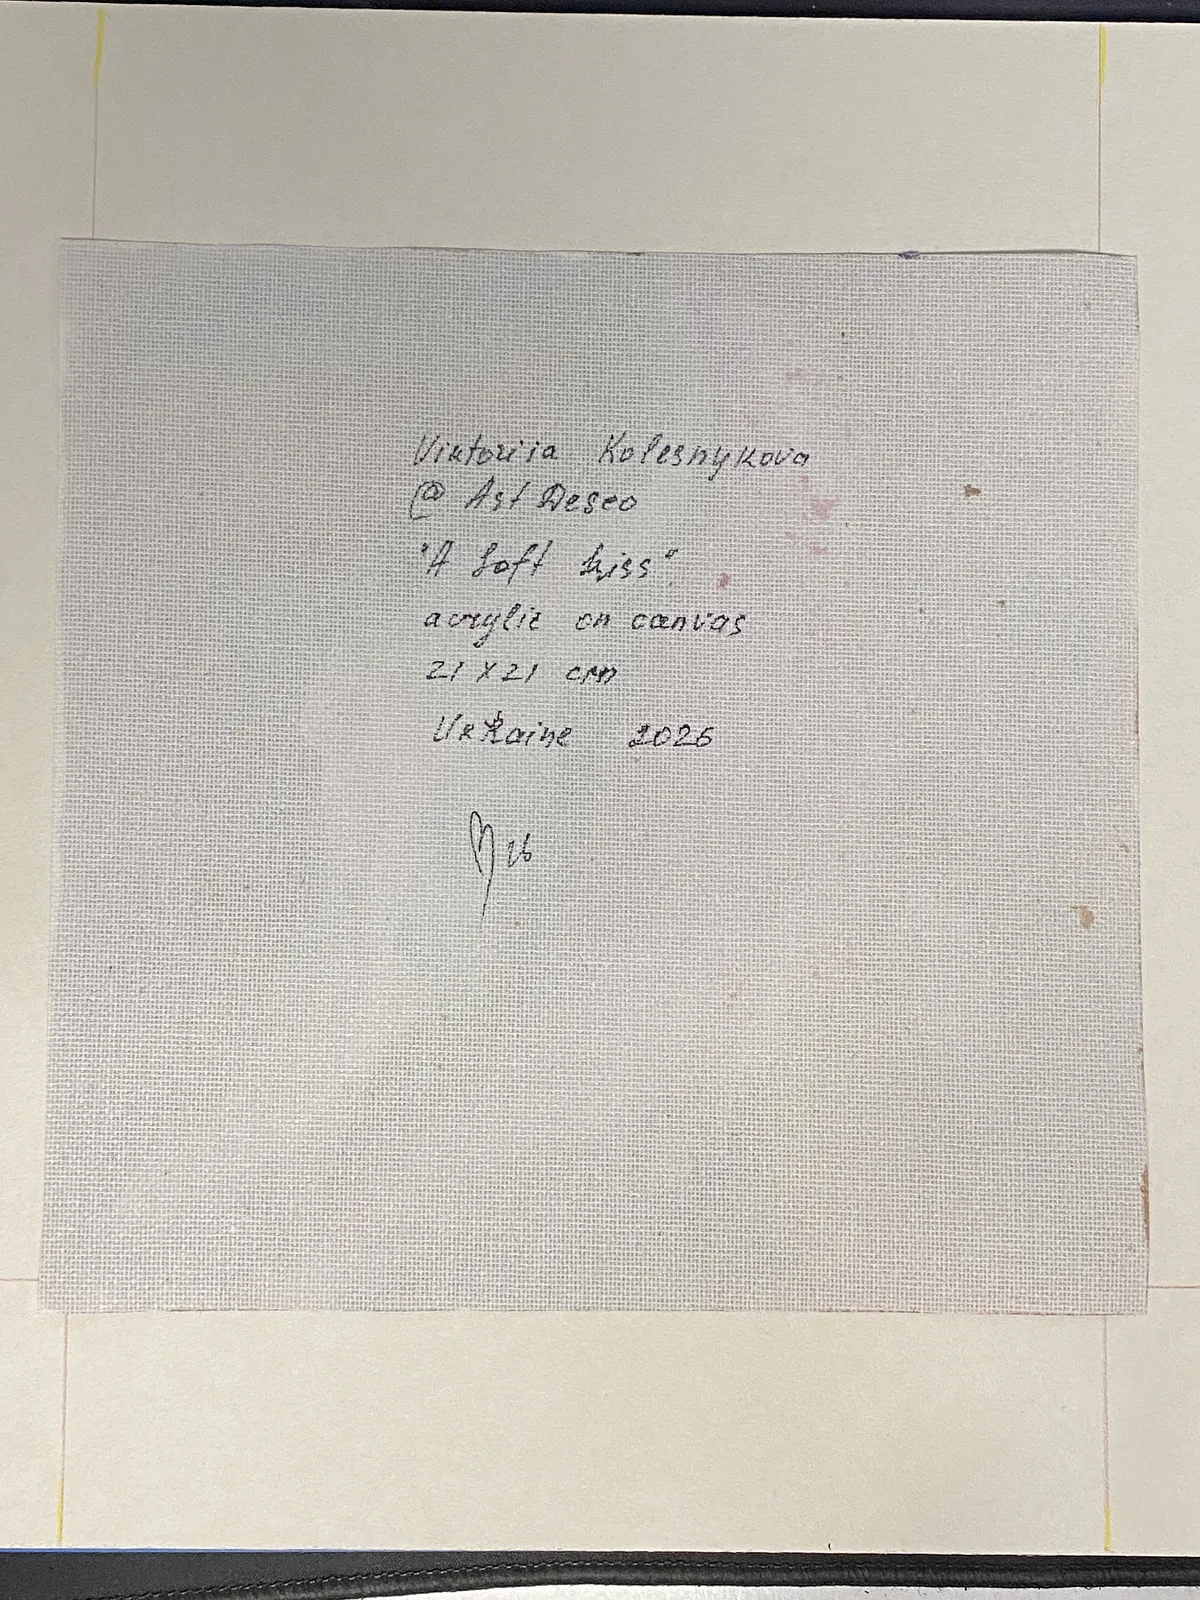 Viktoriia Kolesnykova
@ Art Deseo
"A Soft kiss"
acrylic on canvas
21 x 21 cm
Ukraine 2026
26